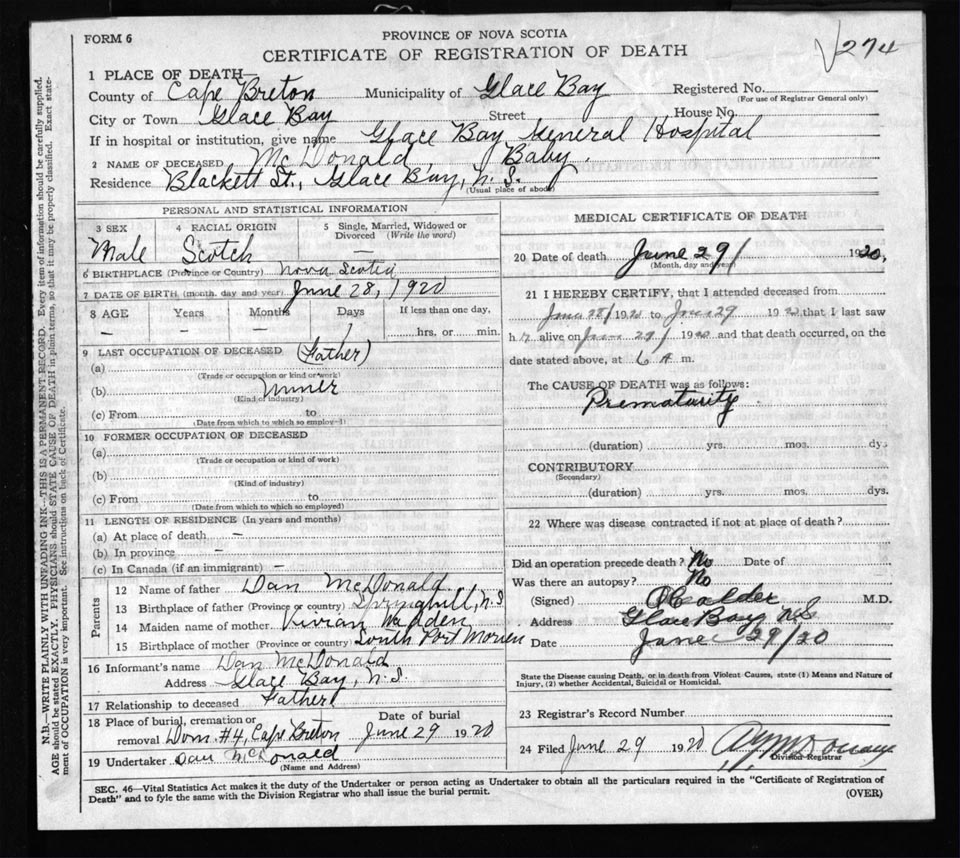 FORM 6
PROVINCE OF NOVA SCOTIA
CERTIFICATE OF REGISTRATION OF DEATH
274
1 PLACE OF DEATH—
County of Cape Breton Municipality of Glace Bay Registered No.
(For use of Registrar General only)
City or Town Glace Bay Street House No.
If in hospital or institution, give name Glace Bay General Hospital
2 NAME OF DECEASED McDonald, Baby.
Residence Blackett St., Glace Bay, N.S.
(Usual place of abode)
PERSONAL AND STATISTICAL INFORMATION
3 SEX 4 RACIAL ORIGIN 5 Single, Married, Widowed or Divorced (Write the word)
Male Scotch —
6 BIRTHPLACE (Province or Country) Nova Scotia
7 DATE OF BIRTH (month, day and year) June 28, 1920
8 AGE Years Months Days If less than one day,
— — — 1 hrs. or min.
9 LAST OCCUPATION OF DECEASED (Father)
(a)
(Trade or occupation or kind of work)
(b) Miner
(Kind of industry)
(c) From to
(Date from which to which so employed)
10 FORMER OCCUPATION OF DECEASED
(a)
(Trade or occupation or kind of work)
(b)
(Kind of industry)
(c) From to
(Date from which to which so employed)
11 LENGTH OF RESIDENCE (In years and months)
(a) At place of death —
(b) In province —
(c) In Canada (if an immigrant) —
Parents
12 Name of father Dan McDonald
13 Birthplace of father (Province or country) Springhill, N.S
14 Maiden name of mother Vivian Wadden
15 Birthplace of mother (Province or country) South Port Morien
16 Informant's name Dan McDonald
Address Glace Bay, N.S.
17 Relationship to deceased Father
18 Place of burial, cremation or removal Dom. #4, Cape Breton Date of burial June 29 1920
19 Undertaker Dan McDonald
(Name and Address)
MEDICAL CERTIFICATE OF DEATH
20 Date of death June 29/ 1920,
(Month, day and year)
21 I HEREBY CERTIFY, that I attended deceased from
June 28/ 1920 to June 29 1920 that I last saw
h alive on June 29/ 1920 and that death occurred, on the
date stated above, at 6 A m.
The CAUSE OF DEATH was as follows:
Prematurity
(duration) yrs. mos. dys
CONTRIBUTORY
(Secondary)
(duration) yrs. mos. dys.
22 Where was disease contracted if not at place of death?
Did an operation precede death? No Date of
Was there an autopsy? No
(Signed) Calder M.D.
Address Glace Bay NS
Date June 29/20
State the Disease causing Death, or in death from Violent Causes, state (1) Means and Nature of
Injury, (2) whether Accidental, Suicidal or Homicidal.
23 Registrar's Record Number
24 Filed June 29 1920
Division Registrar
SEC. 46—Vital Statistics Act makes it the duty of the Undertaker or person acting as Undertaker to obtain all the particulars required in the "Certificate of Registration of
Death" and to fyle the same with the Division Registrar who shall issue the burial permit.
(OVER)
N.B.—WRITE PLAINLY WITH UNFADING INK—THIS IS A PERMANENT RECORD. Every item of information should be carefully supplied.
AGE should be stated EXACTLY. PHYSICIANS should STATE CAUSE OF DEATH in plain terms, so that it may be properly classified. Exact state-
ment of OCCUPATION is very important. See instructions on back of Certificate.